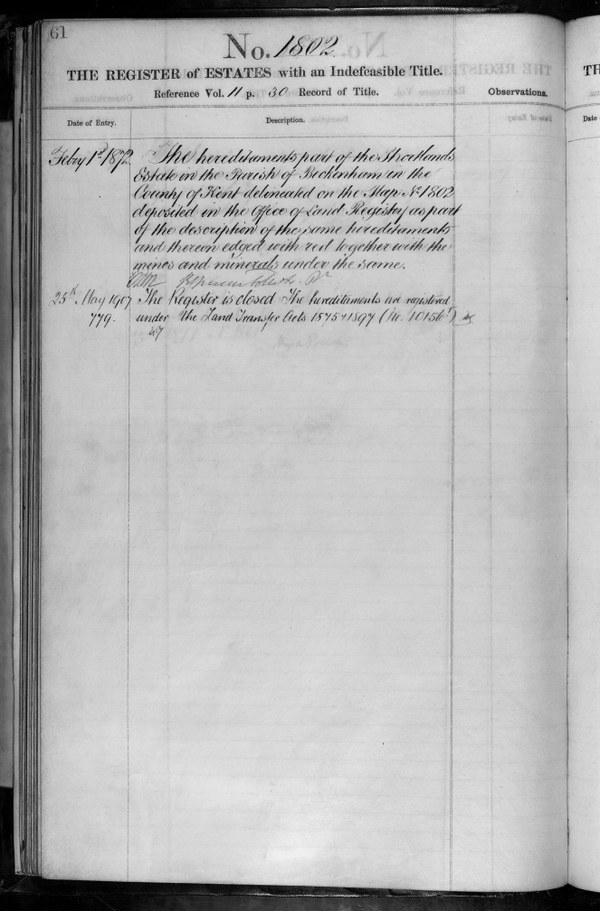 61
No. 1802
THE REGISTER of ESTATES with an Indefeasible Title.
Reference Vol. 11 p. 30 Record of Title.
Observations.
Date of Entry.
Description.
Feby 1st 1872
The hereditaments part of the Shortlands
Estate in the Parish of Beckenham in the
County of Kent delineated on the Map No. 1802
deposited in the Office of Land Registry as part
of the description of the same hereditaments
and thereon edged with red together with the
mines and minerals under the same.
25th May 1907
The Register is closed The hereditaments are registered
779.
under the Land Transfer Acts 1875 & 1897 (No. 101561)
TH
Date